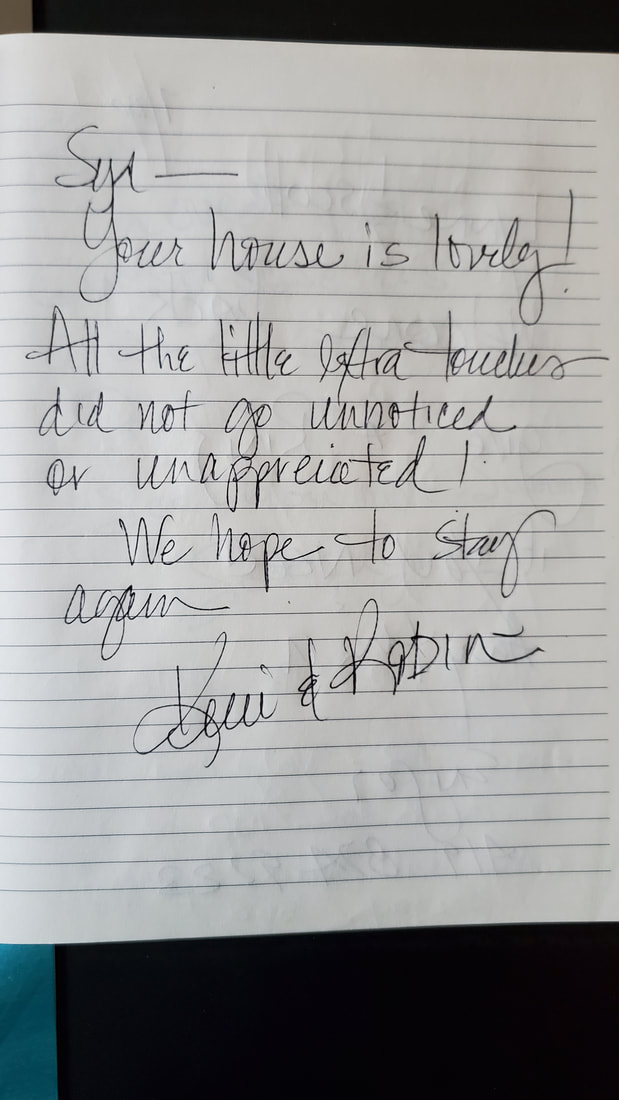 Syl —
Your house is lovely!
All the little extra touches
did not go unnoticed
or unappreiated!
We hope to stay
again
& Robin